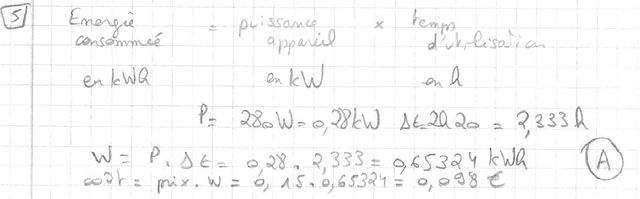 5 Energie = puissance × temps
consommée appareil d'utilisation
en kWh en kW en h
P= 280W=0,28kW Δt=2h20 = 2,333h
W = P. Δt = 0,28 . 2,333 = 0,65324 kWh A
coût = prix. W = 0,15.0,65324 = 0,098 €